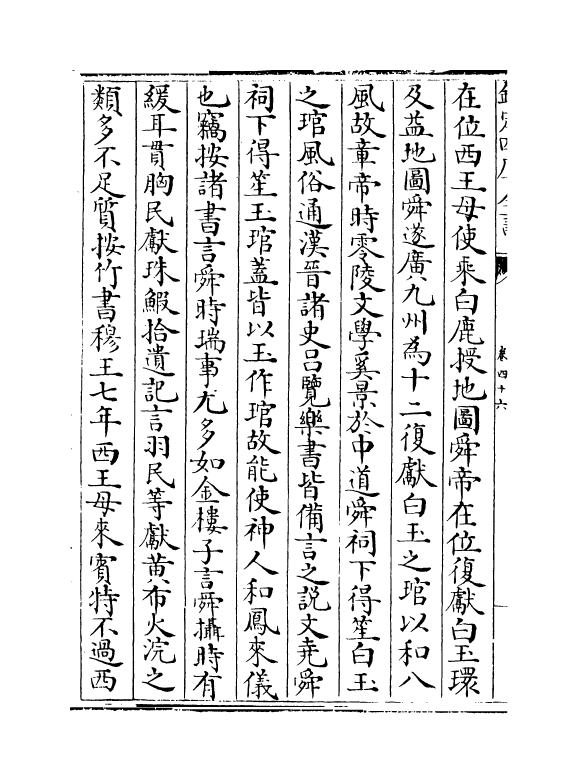 欽定四庫全書
卷四十六
在位西王母使乘白鹿授地圖舜帝在位復獻白玉環
及益地圖舜遂廣九州為十二復獻白玉之琯以和八
風故章帝時零陵文學奚景於中道舜祠下得笙白玉
之琯風俗通漢晉諸史吕覽樂書皆備言之説文堯舜
祠下得笙玉琯蓋皆以玉作琯故能使神人和鳳來儀
也竊按諸書言舜時瑞事尤多如金樓子言舜攝時有
緩耳貫胸民獻珠鰕拾遺記言羽民等獻黄布火浣之
類多不足質按竹書穆王七年西王母來賓特不過西